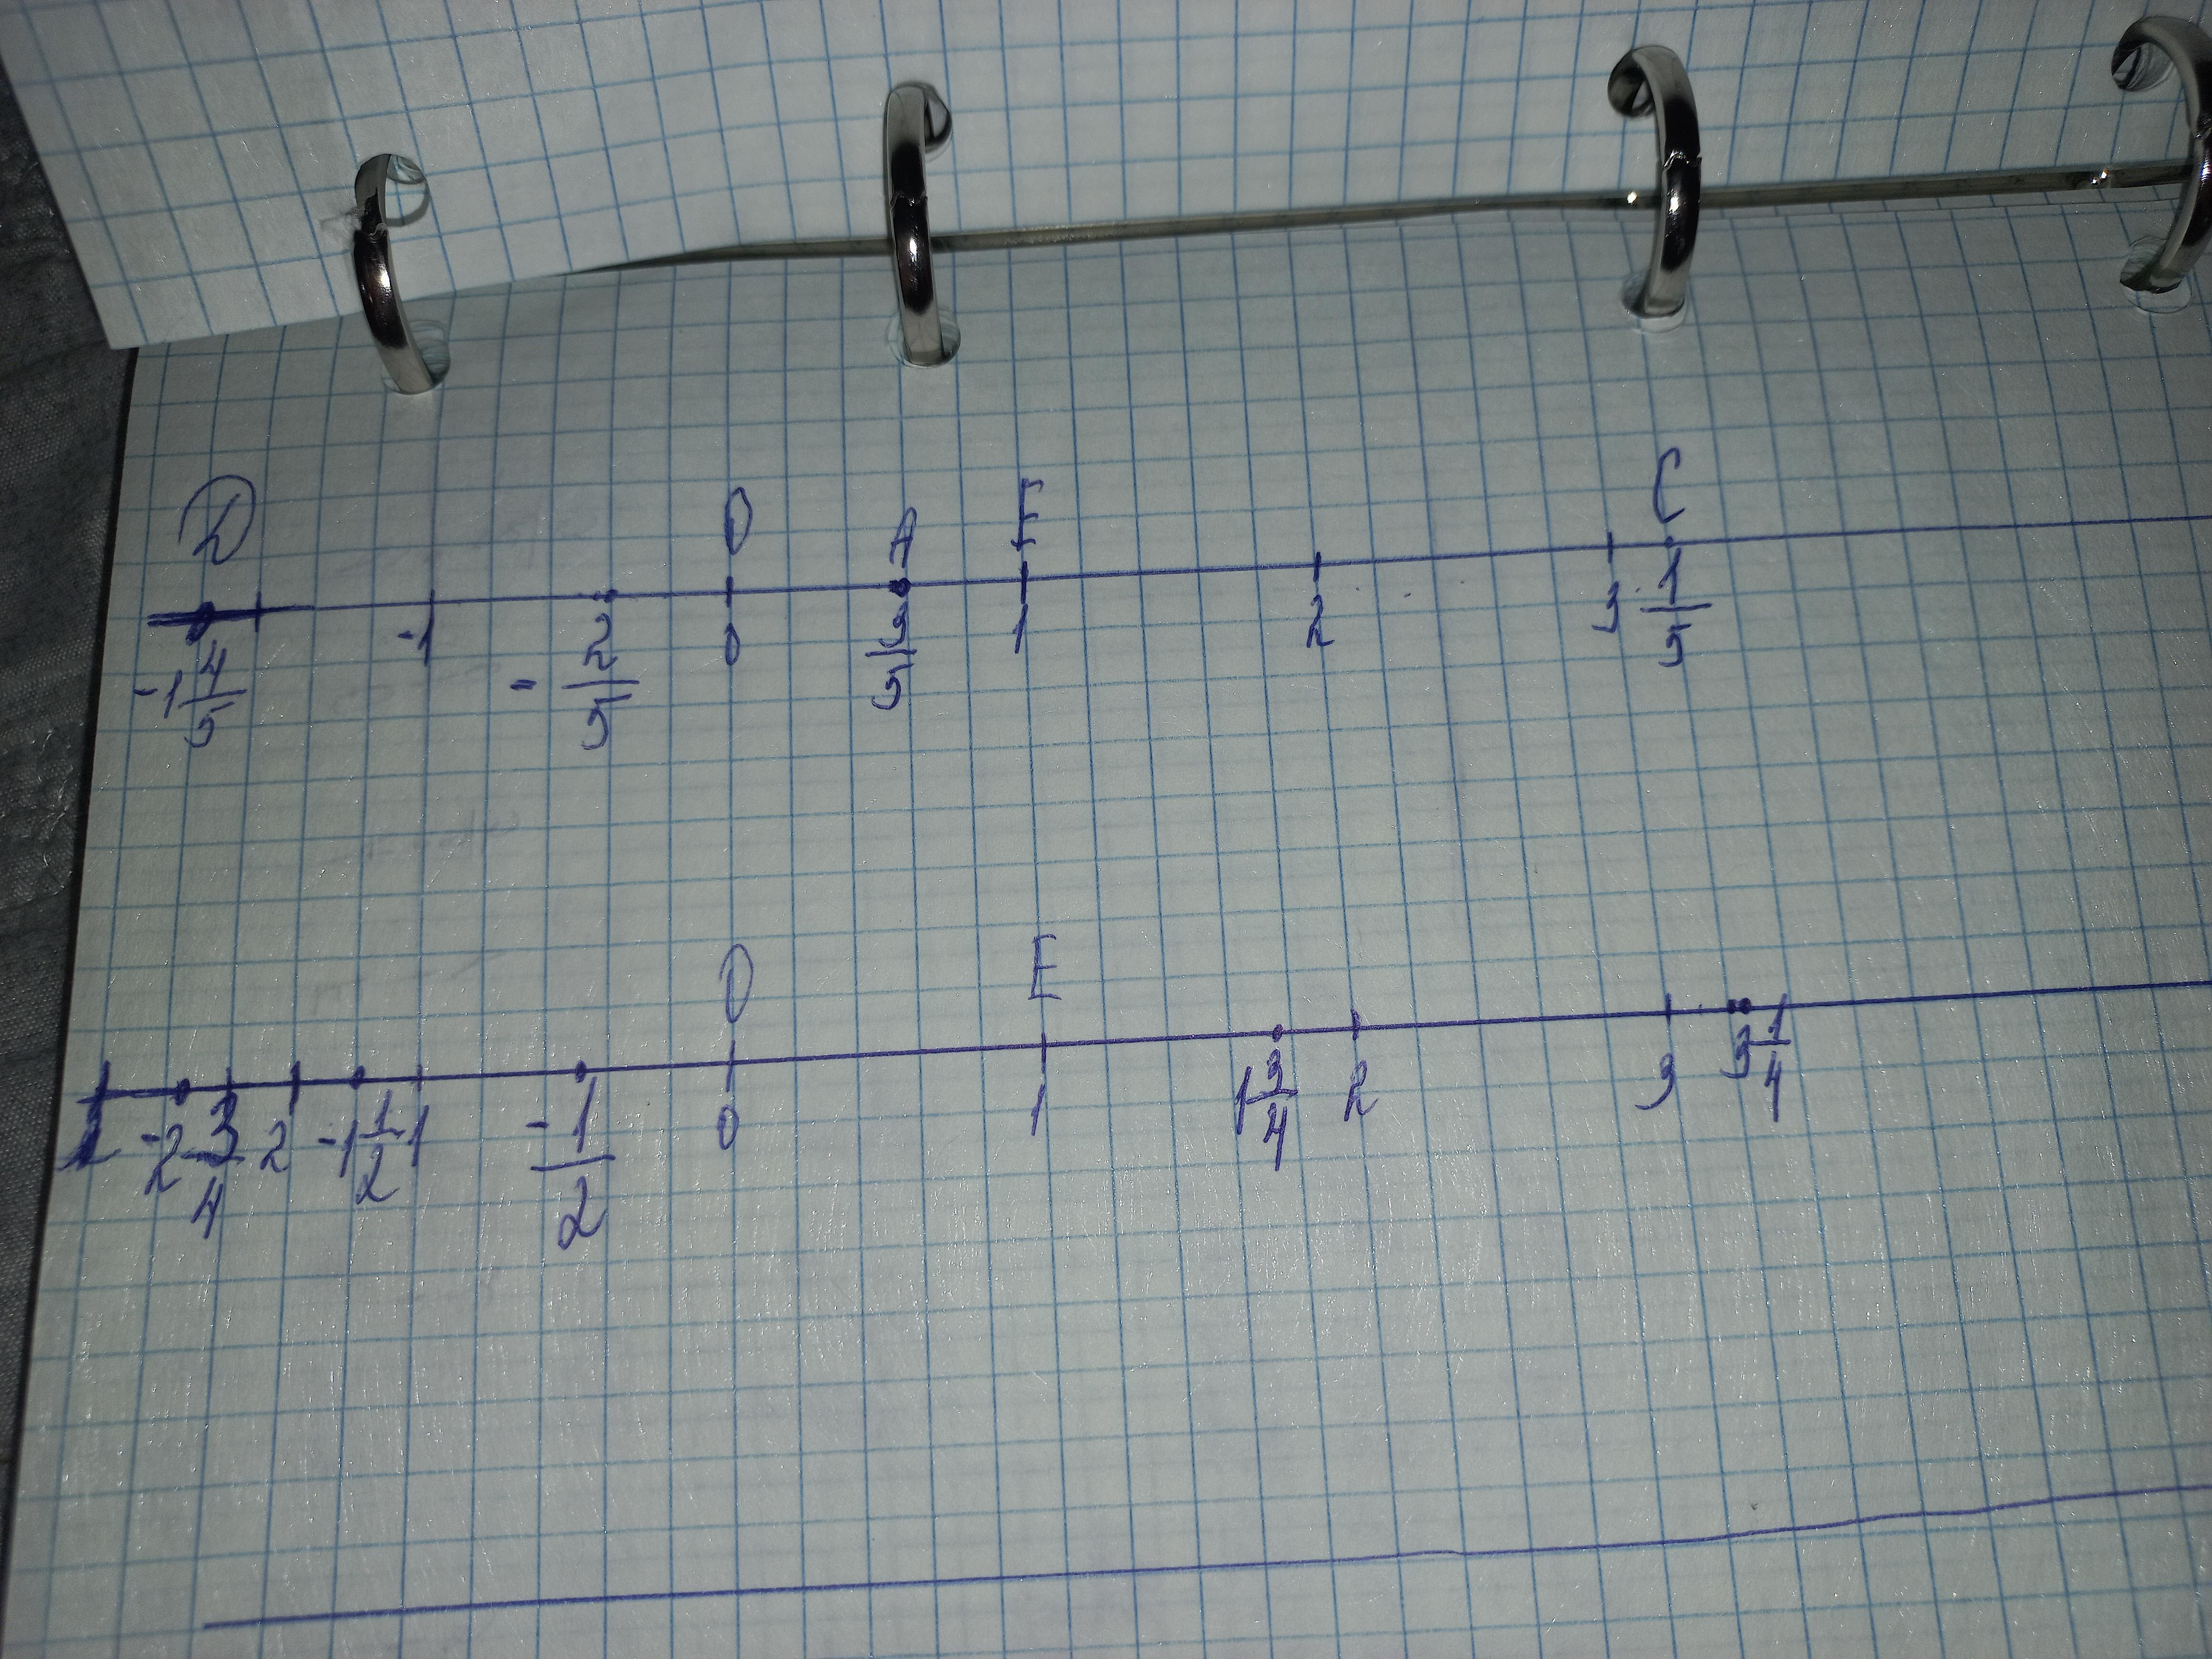 D O A E C
-1 4/5 -1 - 2/5 0 3/5 1 2 3 1/5
O E
-2 3/4 2 -1 1/2 -1 - 1/2 0 1 1 3/4 2 3 3 1/4